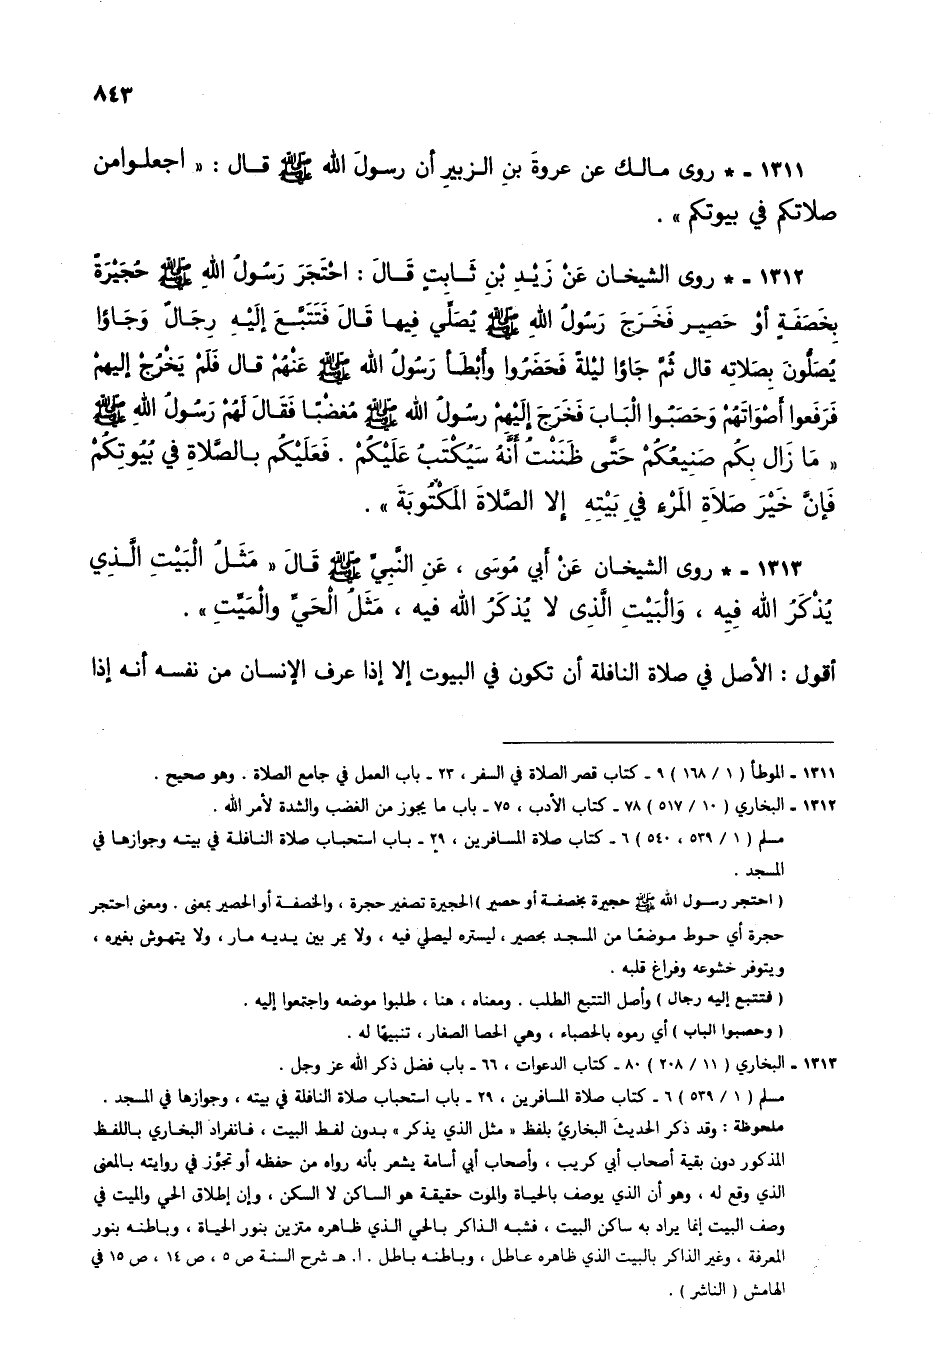 ٨٤٣
١٣١١ - * روى مالك عن عروةَ بنِ الزبيرِ أن رسولَ الله ﷺ قال : « اجعلوا من
صلاتكم في بيوتكم » .
١٣١٢ - * روى الشيخان عَنْ زَيْدِ بْنِ ثَابِتٍ قَالَ : احْتَجَرَ رَسُولُ اللهِ ﷺ حُجَيْرَةً
بِخَصَفَةٍ أوْ حَصِيرٍ فَخَرَجَ رَسُولُ اللهِ ﷺ يُصَلِّي فِيها قَالَ فَتَتَبَّعَ إلَيْهِ رِجَالٌ وَجَاؤا
يُصَلُّونَ بِصَلاتِهِ قال ثُمَّ جَاؤا لَيْلةً فَحَضَرُوا وأَبْطَأ رَسُولُ الله ﷺ عَنْهُمْ قال فَلَمْ يَخْرُجْ إليهِمْ
فَرَفَعوا أصْوَاتَهُمْ وَحَصَبُوا الْبَابَ فَخَرَجَ إلَيْهِمْ رسُولُ الله ﷺ مُغضْبًا فقَالَ لَهُمْ رَسُولُ اللهِ ﷺ
« مَا زَال بِكُم صَنِيعُكُمْ حَتَّى ظَنَنْتُ أنَّهُ سَيُكْتَبُ عَلَيْكُمْ . فَعَلَيْكُم بِالصَّلاةِ فِي بُيُوتِكُمْ
فَإنَّ خَيْرَ صَلاَةِ المَرْءِ فِي بَيْتِهِ إلا الصَّلاةَ المَكْتُوبَةَ » .
١٣١٣ - * روى الشيخان عَنْ أبي مُوسَى ، عَنِ النَّبِيِّ ﷺ قَالَ « مَثَلُ الْبَيْتِ الَّذِي
يُذْكَرُ الله فِيهِ ، وَالْبَيْتِ الَّذِى لا يُذكَرُ الله فيه ، مَثَلُ الْحَيِّ والْمَيِّتِ » .
أقول : الأصل في صلاة النافلة أن تكون في البيوت إلا إذا عرف الإنسان من نفسه أنه إذا
١٣١١ - الموطأ ( ١ / ١٦٨ ) ٩ - كتاب قصر الصلاة في السفر ، ٢٣ - باب العمل في جامع الصلاة . وهو صحيح .
١٣١٢ - البخاري ( ١٠ / ٥١٧ ) ٧٨ - كتاب الأدب ، ٧٥ - باب ما يجوز من الغضب والشدة لأمر الله .
مسلم ( ١ / ٥٣٩ ، ٥٤٠ ) ٦ - كتاب صلاة المسافرين ، ٢٩ - باب استحباب صلاة النافلة في بيته وجوازها في
المسجد .
( احتجر رسول الله ﷺ حجيرة بخصفة أو حصير ) الحجيرة تصغير حجرة ، والخصفة أو الحصير بمعنى . ومعنى احتجر
حجرة أي حوط موضعًا من المسجد بحصير ، ليستره ليصلي فيه ، ولا يمر بين يديه مار ، ولا يتهوش بغيره ،
ويتوفر خشوعه وفراغ قلبه .
( فتتبع إليه رجال ) وأصل التتبع الطلب . ومعناه ، هنا ، طلبوا موضعه واجتمعوا إليه .
( وحصبوا الباب ) أي رموه بالحصباء ، وهي الحصا الصغار ، تنبيهًا له .
١٣١٣ - البخاري ( ١١ / ٢٠٨ ) ٨٠ - كتاب الدعوات ، ٦٦ - باب فضل ذكر الله عز وجل .
مسلم ( ١ / ٥٣٩ ) ٦ - كتاب صلاة المسافرين ، ٢٩ - باب استحباب صلاة النافلة في بيته ، وجوازها في المسجد .
ملحوظة : وقد ذكر الحديث البخاريُ بلفظ « مثل الذي يذكر » بدون لفظ البيت ، فانفراد البخاري باللفظ
المذكور دون بقية أصحاب أبي كريب ، وأصحاب أبي أسامة يشعر بأنه رواه من حفظه أو تجوَّز في روايته بالمعنى
الذي وقع له ، وهو أن الذي يوصف بالحياة والموت حقيقة هو الساكن لا السكن ، وإن إطلاق الحي والميت في
وصف البيت إنما يراد به ساكن البيت ، فشبه الذاكر بالحي الذي ظاهره متزين بنور الحياة ، وباطنه بنور
المعرفة ، وغير الذاكر بالبيت الذي ظاهره عاطل ، وباطنه باطل . ا. هـ شرح السنة ص ٥ ، ص ١٤ ، ص ١٥ في
الهامش ( الناشر ) .